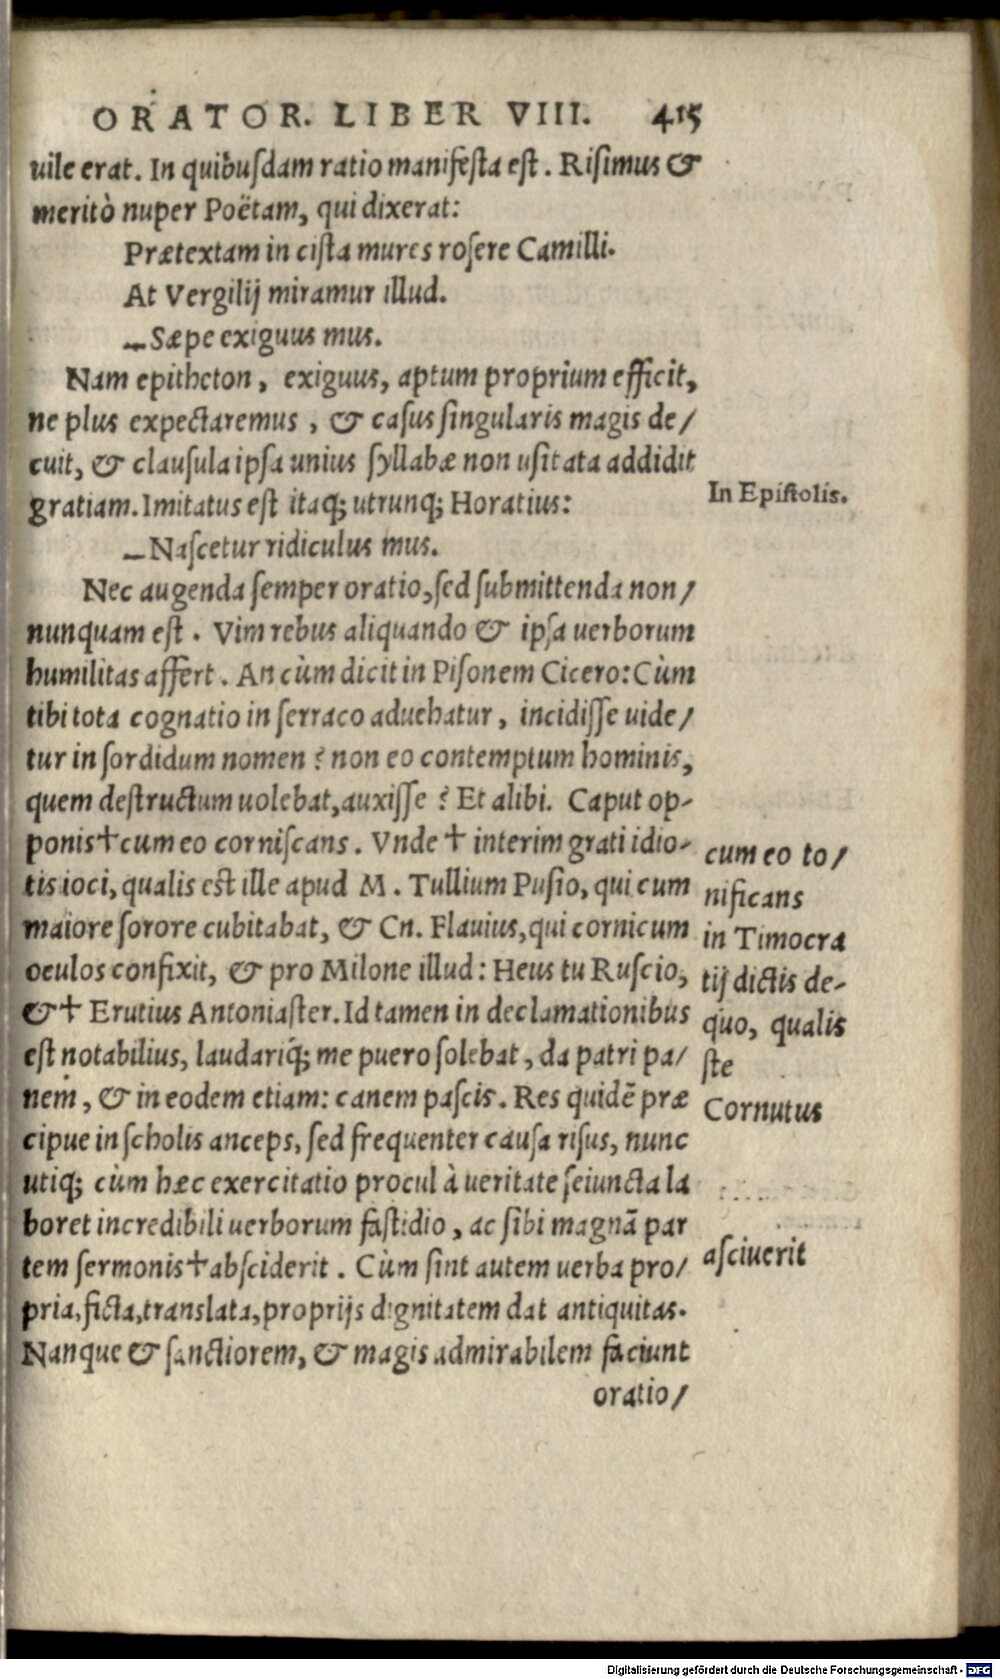 ORATOR. LIBER VIII. 415
uile erat. In quibuſdam ratio manifeſta eſt. Riſimus &
meritò nuper Poëtam, qui dixerat:
Prætextam in ciſta mures roſere Camilli.
At Vergilij miramur illud.
—Sæpe exiguus mus.
Nam epitheton, exiguus, aptum proprium efficit,
ne plus expectaremus, & caſus ſingularis magis de/
cuit, & clauſula ipſa unius ſyllabæ non uſitata addidit
gratiam. Imitatus eſt itaq; utrunq; Horatius:
In Epiſtolis.
—Naſcetur ridiculus mus.
Nec augenda ſemper oratio, ſed ſubmittenda non/
nunquam eſt. Vim rebus aliquando & ipſa uerborum
humilitas affert. An cùm dicit in Piſonem Cicero: Cùm
tibi tota cognatio in ſerraco aduehatur, incidiſſe uide/
tur in ſordidum nomen? non eo contemptum hominis,
quem deſtructum uolebat, auxiſſe? Et alibi. Caput op-
ponis†cum eo corniſcans. Vnde † interim grati idio-
tis ioci, qualis eſt ille apud M. Tullium Puſio, qui cum
maiore ſorore cubitabat, & Cn. Flauius, qui cornicum
oculos confixit, & pro Milone illud: Heus tu Ruſcio,
&† Erutius Antoniaſter. Id tamen in declamationibus
eſt notabilius, laudariq́; me puero ſolebat, da patri pa/
nem, & in eodem etiam: canem paſcis. Res quidẽ præ
cipue in ſcholis anceps, ſed frequenter cauſa riſus, nunc
utiq; cùm hæc exercitatio procul à ueritate ſeiuncta la
boret incredibili uerborum faſtidio, ac ſibi magnã par
tem ſermonis†abſciderit. Cùm ſint autem uerba pro/
pria, ficta, translata, proprijs dignitatem dat antiquitas.
Nanque & ſanctiorem, & magis admirabilem faciunt
oratio/
cum eo to/
nificans
in Timocra
tij dictis de-
quo, qualis
ſte
Cornutus
aſciuerit
Digitalisierung gefördert durch die Deutsche Forschungsgemeinschaft - DFG